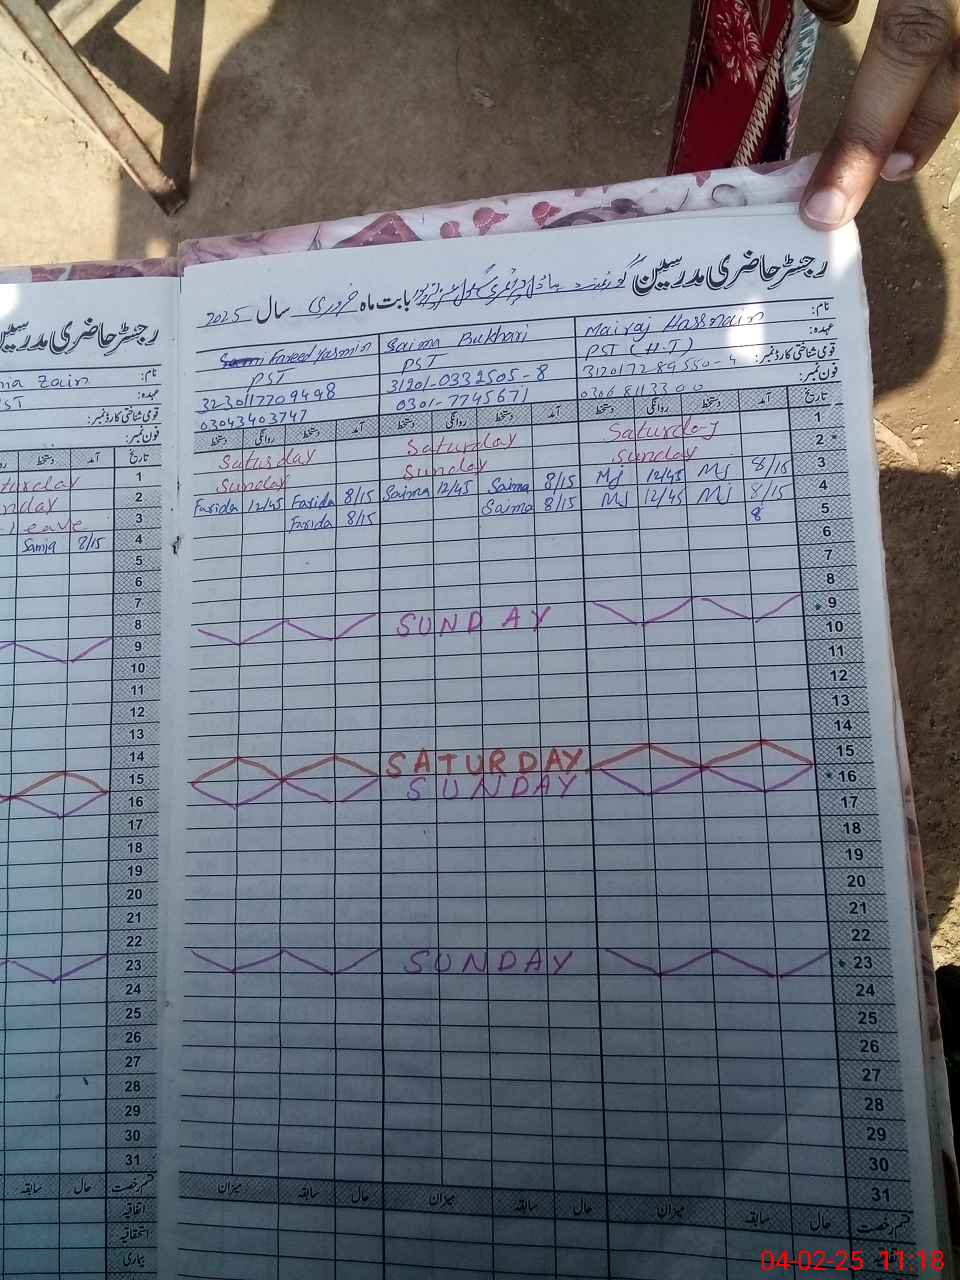 رجسٹر حاضری مدرسین گورنمنٹ ماڈل پرائمری سکول بابت ماہ فروری سال 2025
نام: Mairaj Hassnain Saima Bukhari Fareed Yasmin
عہدہ: PST (H.T) PST PST
قومی شناختی کارڈ نمبر: 31201-0332505-8 3230117709498
فون نمبر: 03068113300 0301-7745671 03043403747
تاریخ آمد دستخط روانگی دستخط آمد دستخط روانگی دستخط آمد دستخط روانگی دستخط
1 Saturday Saturday Saturday
2 Sunday Sunday Sunday
3 8/15 Mj 12/45 Mj 8/15 Saima 12/45 Saima 8/15 Farida 12/45 Farida
4 8/15 Mj 12/45 Mj 8/15 Saima 8/15 Farida
5 8
6
7
8
9 SUNDAY
10
11
12
13
14
15 SATURDAY
16 SUNDAY
17
18
19
20
21
22
23 SUNDAY
24
25
26
27
28
29
30
31
قسم رخصت حال سابقہ میزان حال سابقہ میزان حال سابقہ میزان
رجسٹر حاضری مدرسین
نام: Zain
عہدہ: PST
قومی شناختی کارڈ نمبر:
فون نمبر:
تاریخ آمد دستخط
1 Saturday
2 Sunday
3 Leave
4 8/15 Samia
5
6
7
8
9
10
11
12
13
14
15
16
17
18
19
20
21
22
23
24
25
26
27
28
29
30
31
قسم رخصت حال سابقہ
اتفاقیہ
استحقاقیہ
بیماری
04-02-25 11:18